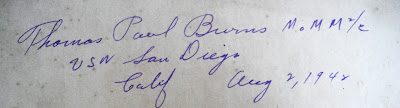 Thomas Paul Burns M.o M M 2/c
USN San Diego
Calif Aug 2, 1942